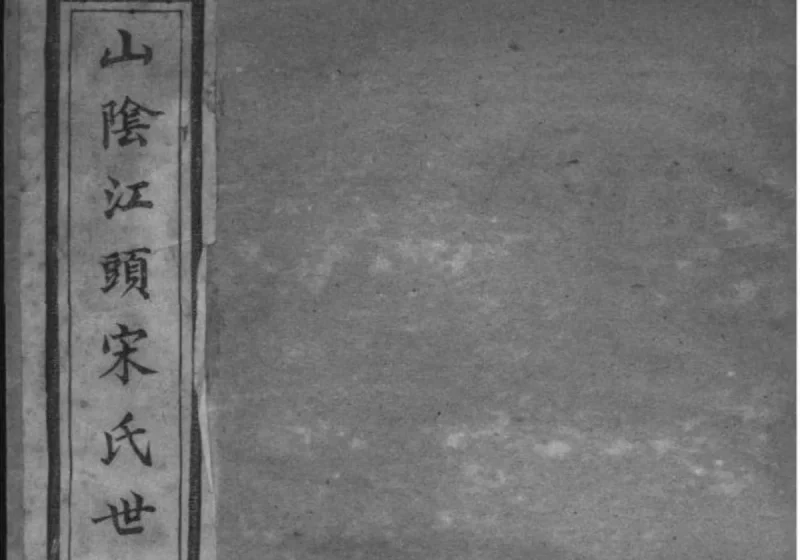 山陰江頭宋氏世